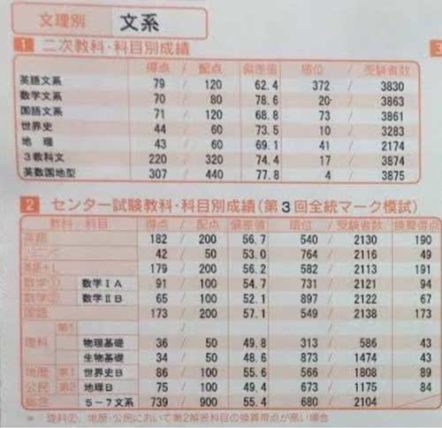 文理別 文系
1 二次教科・科目別成績
得点 / 配点 偏差値 順位 / 受験者数
英語文系 79 / 120 62.4 372 / 3830
数学文系 70 / 80 78.6 20 / 3863
国語文系 71 / 120 68.8 73 / 3861
世界史 44 / 60 73.5 10 / 3283
地理 43 / 60 69.1 41 / 2174
3教科文 220 / 320 74.4 17 / 3874
英数国地型 307 / 440 77.8 4 / 3875
2 センター試験教科・科目別成績(第3回全統マーク模試)
教科 / 科目 得点 / 配点 偏差値 順位 / 受験者数 換算得点
英語 182 / 200 56.7 540 / 2130 190
42 / 50 53.0 764 / 2116 49
英語+L 179 / 200 56.2 582 / 2113 191
数学① 数学ⅠA 91 / 100 54.7 731 / 2121 94
数学② 数学ⅡB 65 / 100 52.1 897 / 2122 67
国語 173 / 200 57.1 549 / 2138 173
第1 / /
理科 物理基礎 36 / 50 49.8 313 / 586 43
生物基礎 34 / 50 48.6 873 / 1474 43
地歴 第1 世界史B 86 / 100 55.6 566 / 1808 89
公民 第2 地理B 75 / 100 49.4 673 / 1175 84
総合 5-7文系 739 / 900 55.4 680 / 2104
* 理科②、地歴・公民において第2解答科目の換算得点が高い場合